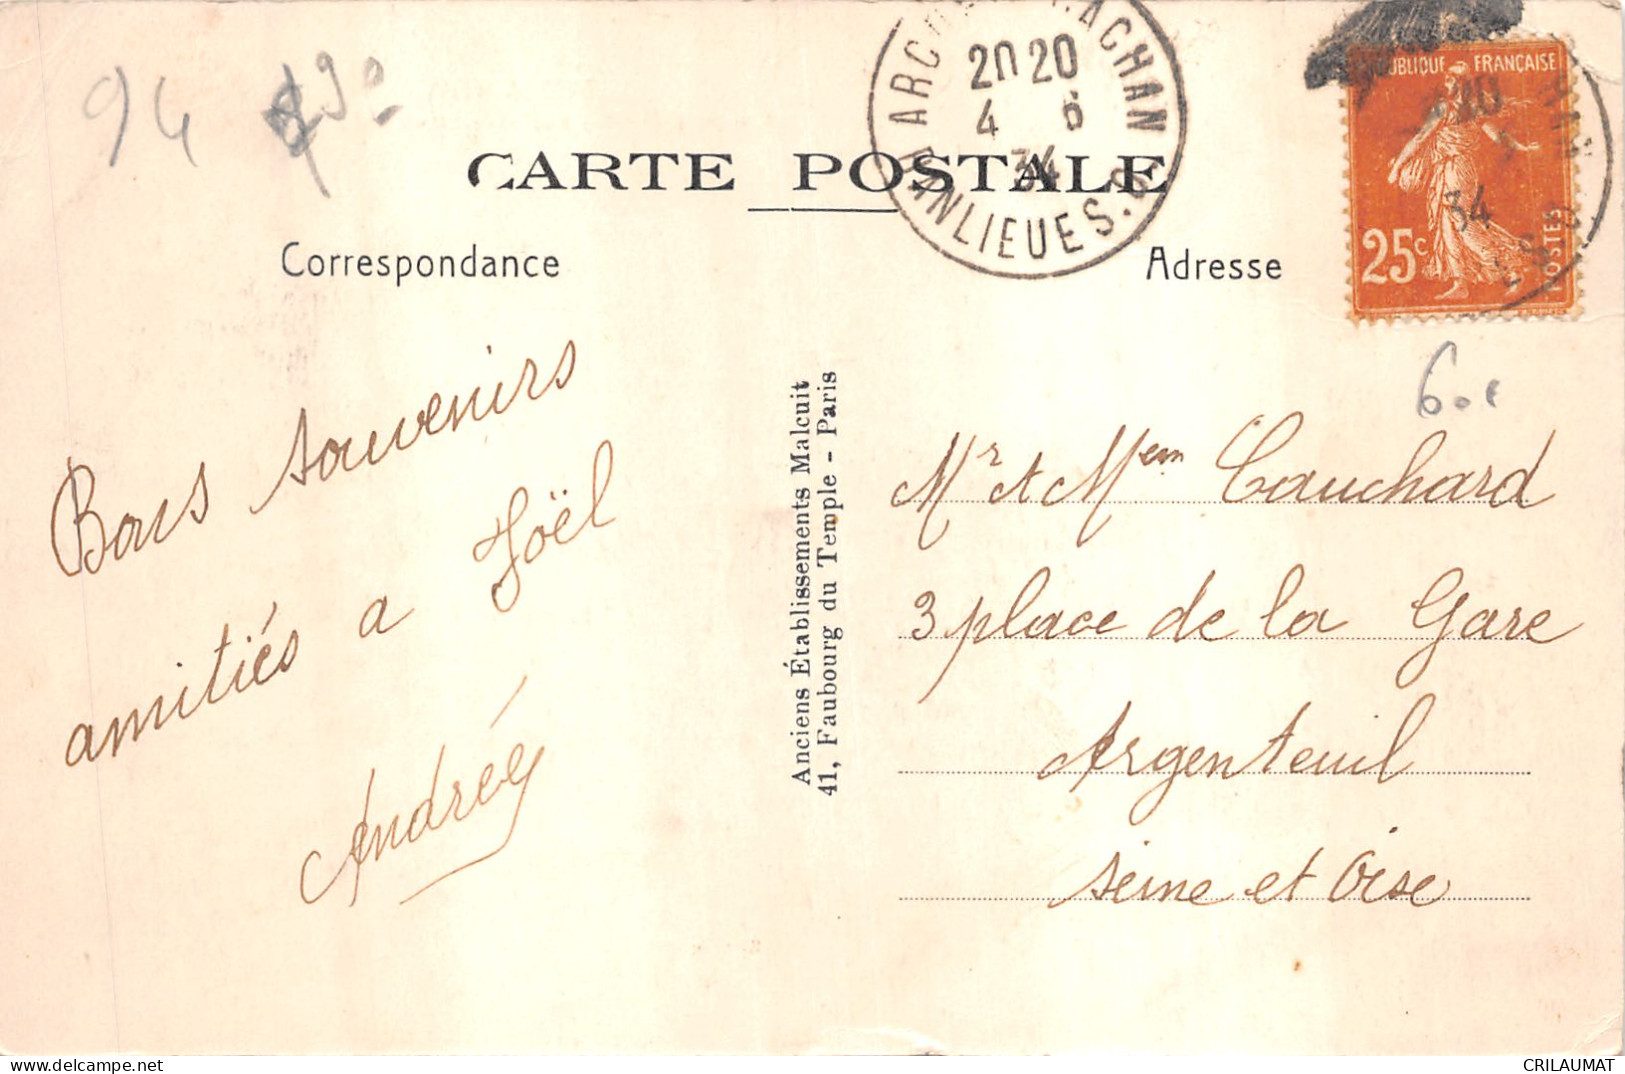 94
CARTE POSTALE
20 20
4 6
34
BANLIEUE S.O.
RÉPUBLIQUE FRANÇAISE
25c
POSTES
Correspondance
Adresse
Bons souvenirs
amitiés a Joël
Andrée
Anciens Établissements Malcuit
41, Faubourg du Temple - Paris
Mr et Mem Cauchard
3 place de la Gare
Argenteuil
seine et Oise
CRILAUMAT